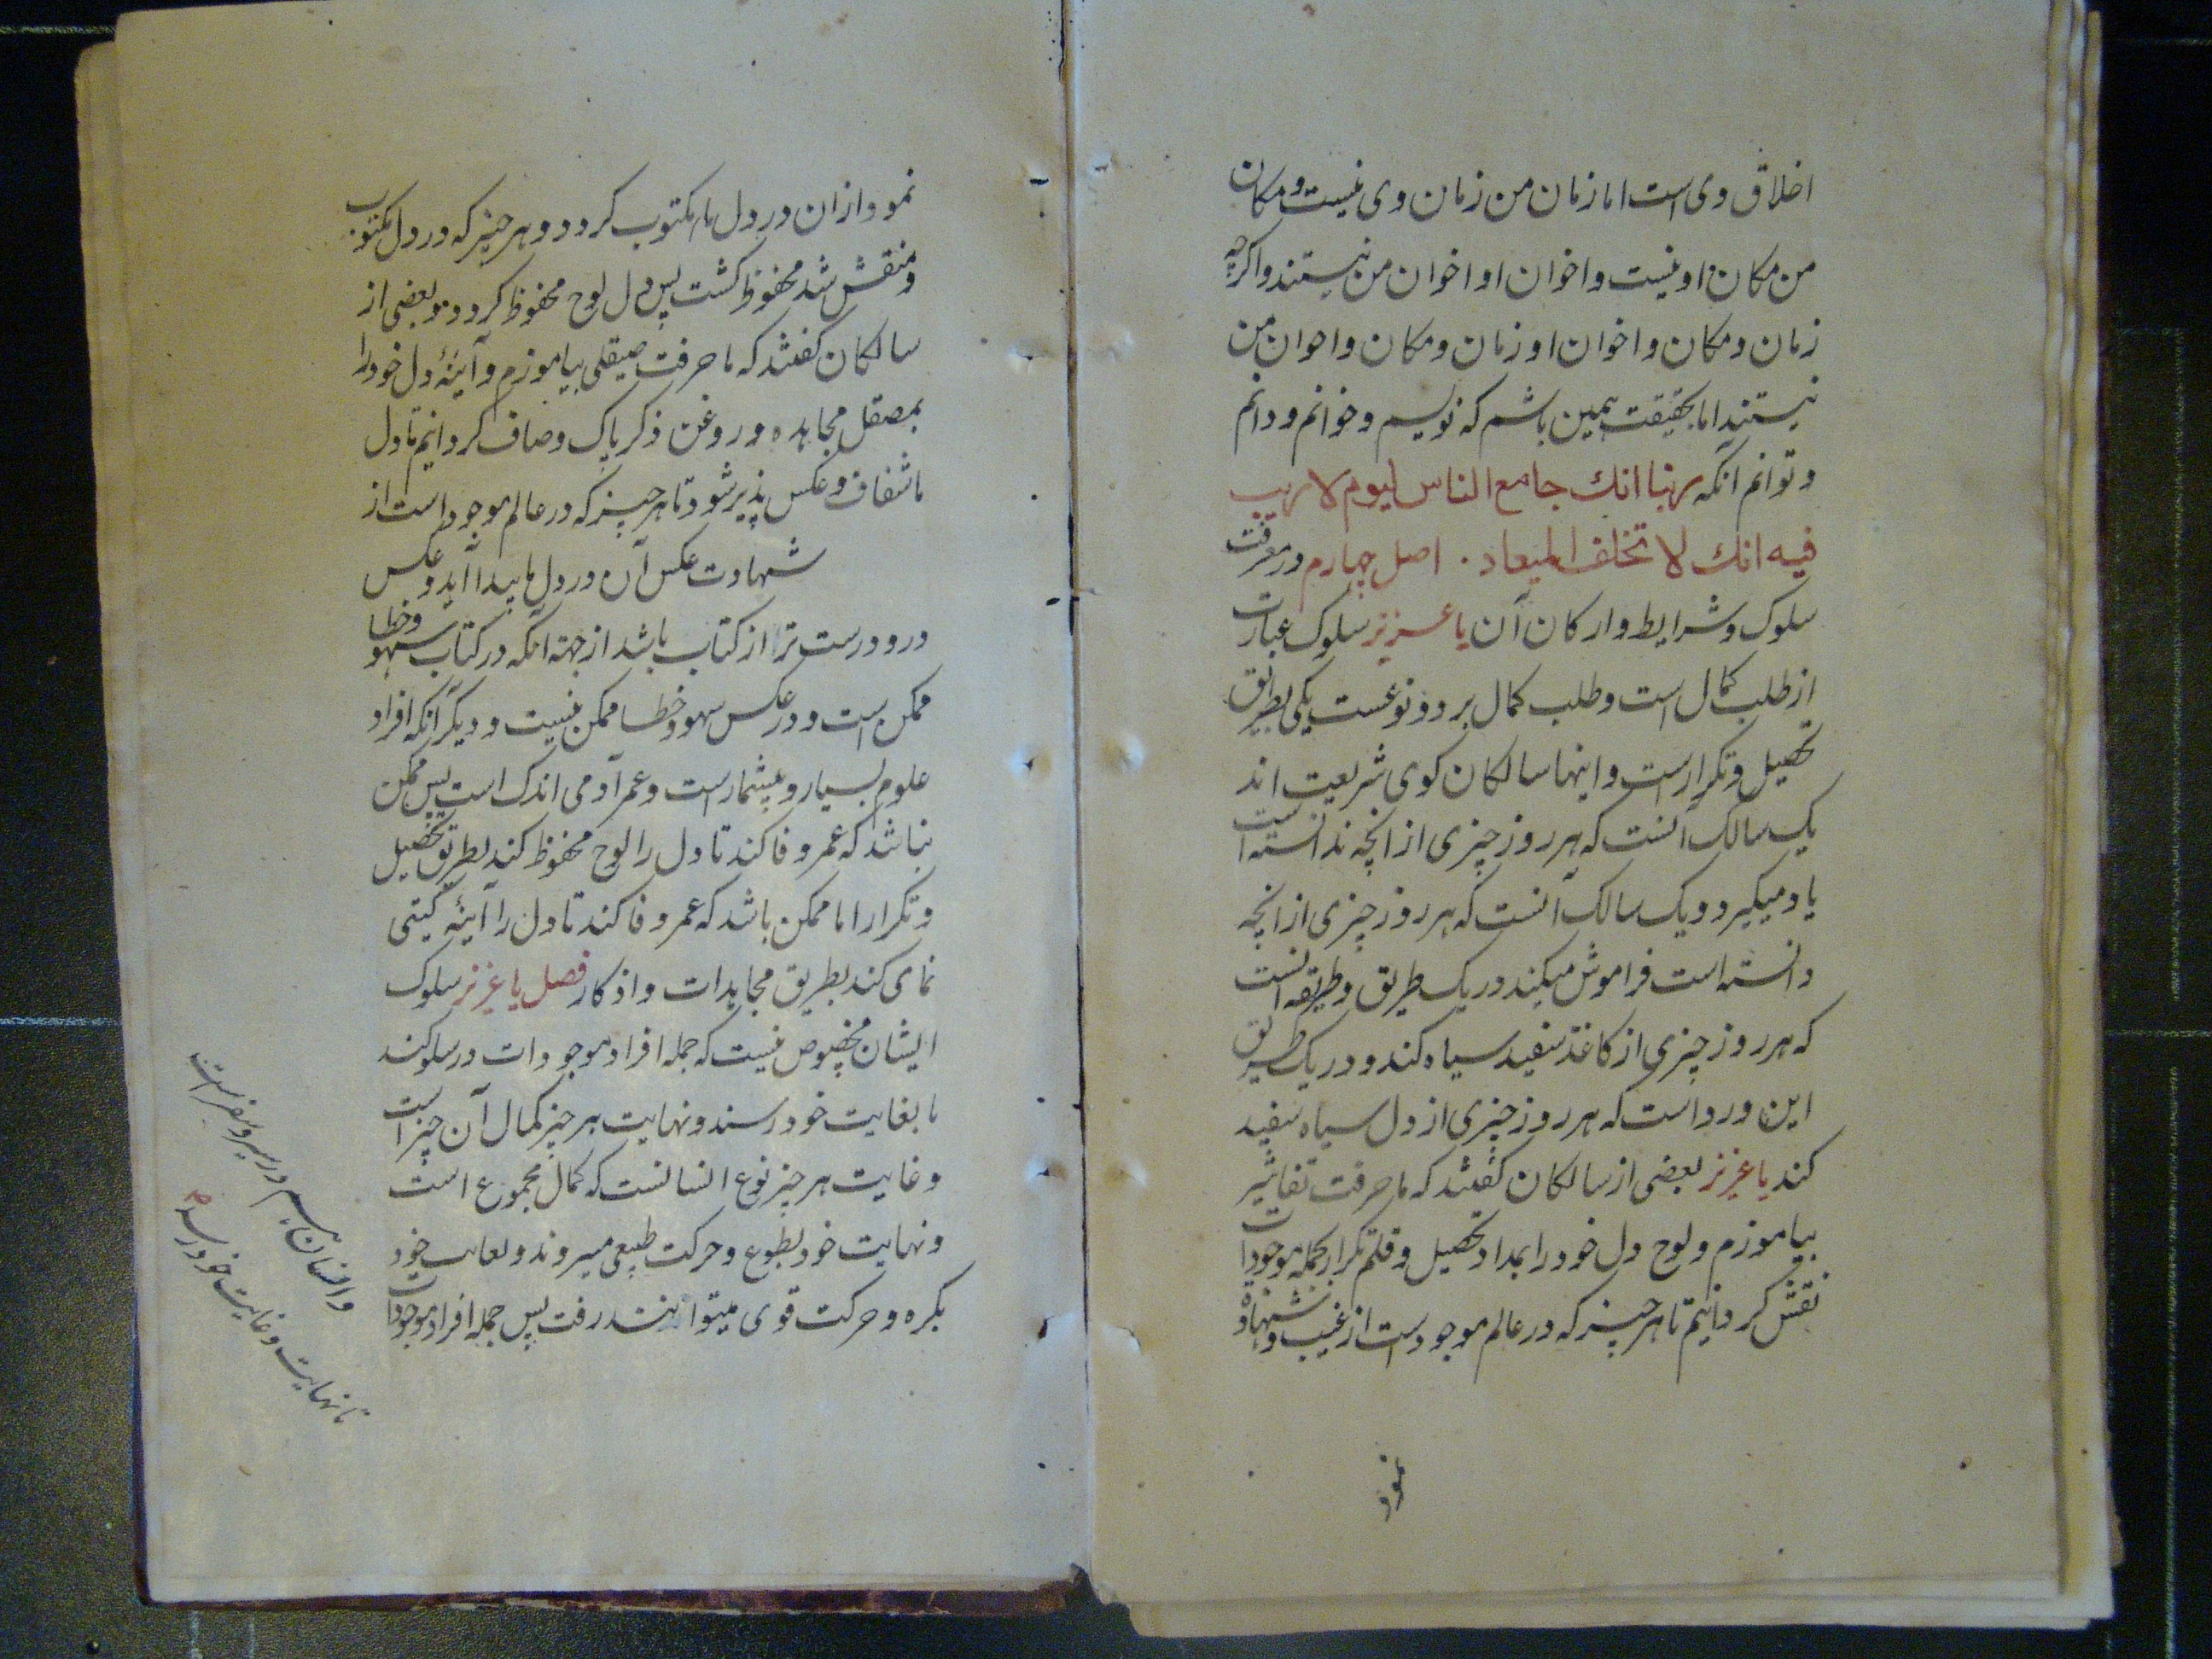 اخلاق وی است اما زمان من زمان وی نیست و مکان
من مکان او نیست و اخوان او اخوان من نیستند و اکرچه
زمان و مکان و اخوان او زمان و مکان و اخوان من
نیستند اما بحقیقت همین باشم که نویسم و خوانم و دانم
و توانم آنکه ربنا انك جامع الناس لیوم لا ریب
فیه انك لا تخلف المیعاد . اصل چهارم در معرفت
سلوک و شرایط و ارکان آن یا عزیز سلوک عبارت
از طلب کمال است و طلب کمال بر دو نوعست یکی بطریق
تحصیل و تکرار است و اینها سالکان کوی شریعت اند
یک سالک آنست که هر روز چیزی از انچه ندانسته است
یاد میکیرد و یک سالک آنست که هر روز چیزی از انچه
دانسته است فراموش میکند در یک طریق وظیفه آنست
که هر روز چیزی از کاغذ سفید سیاه کند و در یک طریق
این ورد است که هر روز چیزی از دل سیاه سفید
کند یا عزیز بعضی از سالکان کفتند که ما حرفت نقاشی
بیاموزم و لوح دل خود را بمداد تحصیل و قلم تکرار بجمله موجودات
نقش کردانیم تا هر چیز که در عالم موجودست از غیب و شهاده
نمود
نمودار آن در دل ما مکتوب کردد و هر چیز که در دل مکتوب
و منقش شد محفوظ کشت پس دل لوح محفوظ کردد و بعضی از
سالکان کفتند که ما حرفت صیقلی بیاموزم و آینهٔ دل خود را
بمصقل مجاهده و روغن ذکر پاک و صاف کردانیم تا دل
ما شفاف و عکس پذیر شود تا هر چیز که در عالم موجود است از
شهادت عکس آن در دل ما پیدا آید و عکس
درو درست تر از کتاب باشد از جهة آنکه در کتاب سهو و خطا
ممکن است و در عکس سهو و خطا ممکن نیست و دیکر آنکه افراد
علوم بسیار و بیشمار است و عمر آدمی اندک است پس ممکن
نباشد که عمر وفا کند تا دل را لوح محفوظ کند بطریق تحصیل
و تکرار اما ممکن باشد که عمر وفا کند تا دل را آینهٔ کیتی
نمای کند بطریق مجاهدات و اذکار فصل یا عزیز سلوک
ایشان مخصوص نیست که جمله افراد موجودات در سلوکند
تا بغایت خود رسند و نهایت هر چیز کمال آن چیز است
و غایت هر چیز نوع انسانست که کمال مجموع است
و نهایت خود بطوع و حرکت طبیعی میروند و بغایت خود
بکره و حرکت قوی میتوانند رفت پس جمله افراد موجودات
و انسان هم در سیر و سفر است
تا نهایت و غایت خود رسد